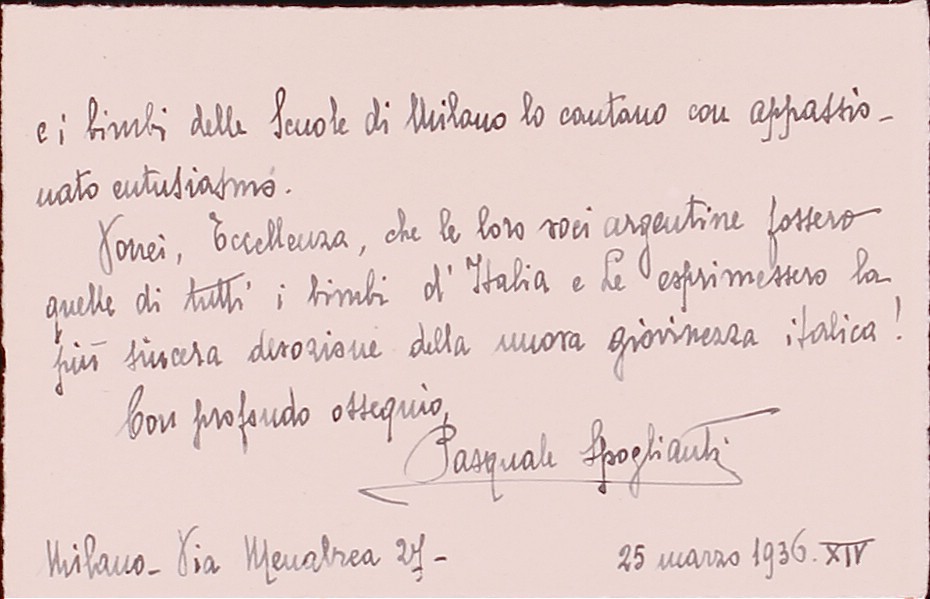 e i bimbi delle Scuole di Milano lo cantano con appassio-
nato entusiasmo.
Vorrei, Eccellenza, che le loro voci argentine fossero
quelle di tutti i bimbi d'Italia e Le esprimessero la
più sincera devozione della nuova giovinezza italica!
Con profondo ossequio,
Pasquale Spoglianti
Milano - Via Menabrea 27 - 25 marzo 1936. XIV